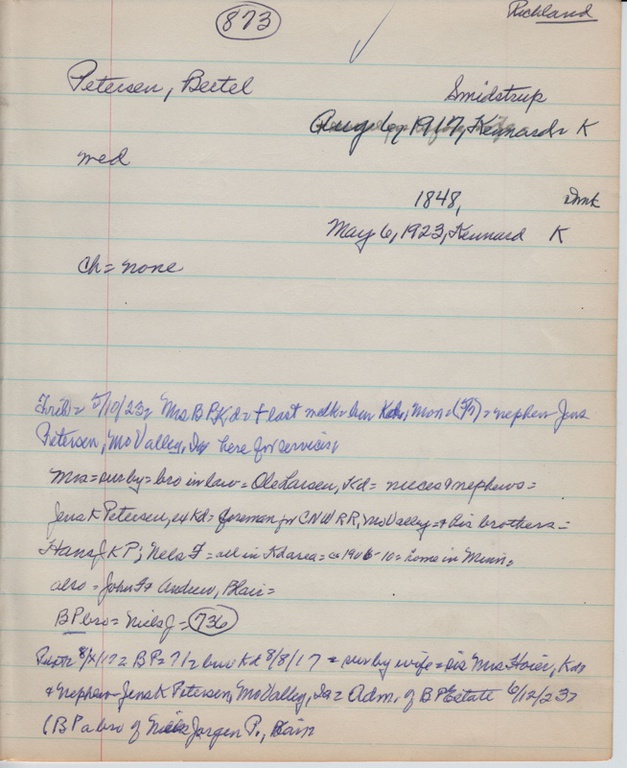 873
Richland
Petersen, Bertel
Smidstrup
Aug 6, 1917, Kennard = K
med
1848,
May 6, 1923, Kennard K
Ch = none
5/10/23 = Mrs B P, Kd = † last = bur Kd, Mon = nephew Jens
Petersen, Mo Valley, Ia here for services,
Mrs = sur by = bro in law = Ole Larsen, Kd = nieces & nephews =
Jens K Petersen, ex Kd = foreman for CNW RR, Mo Valley = & his brothers =
Hans J K P; Nels F = all in Kd area = 1906-10 = home in Minn =
also = John F & Andrew, Blair =
B P bro = Niels J = 736
8/8/17 = sur by wife = sis Mrs Hoier, Kd =
& nephew Jens K Petersen, Mo Valley, Ia = Adm. of B P Estate 6/12/23 =
(B P a bro of Niels Jorgen P., Blair